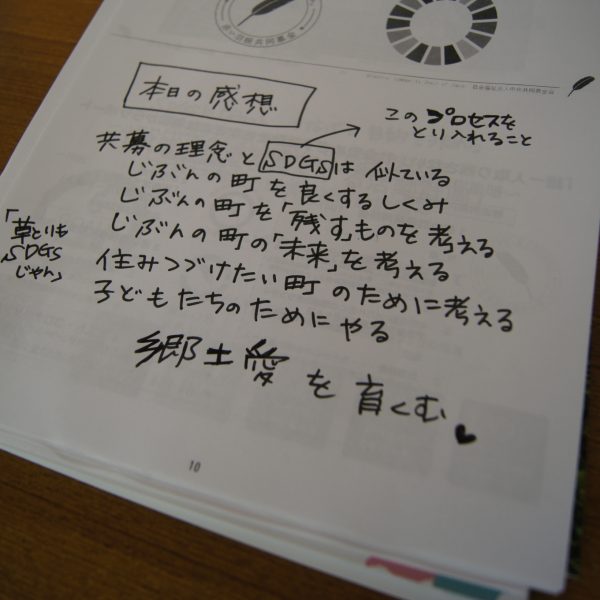 本日の感想
このプロセスを
とり入れること
共募の理念とSDGSは似ている
じぶんの町を良くするしくみ
じぶんの町を「残す」ものを考える
じぶんの町の「未来」を考える
住みつづけたい町のために考える
子どもたちのためにやる
「草とりも
SDGS
じゃん」
郷土愛を育くむ
10